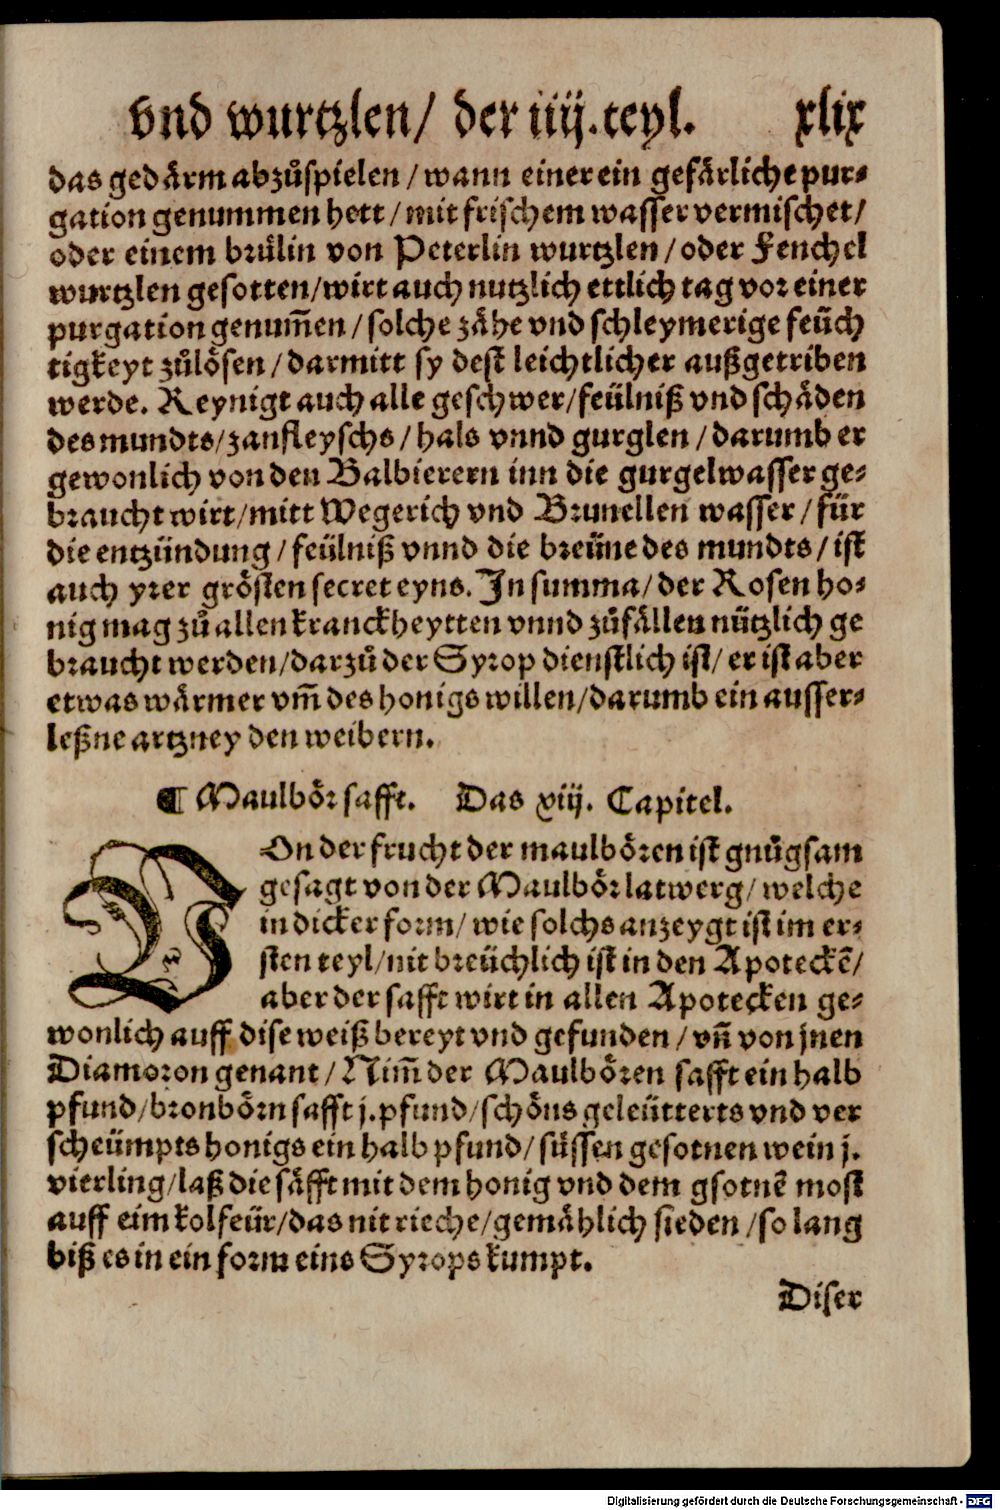 vnd wurtzlen/ der iiij. teyl. xlix
das gedärm abzůspielen / wann einer ein gefärliche pur⸗
gation genummen hett / mit frischem wasser vermischet /
oder einem brůlin von Peterlin wurtzlen / oder Fenchel
wurtzlen gesotten/wirt auch nutzlich ettlich tag vor einer
purgation genum̃en / solche zähe vnd schleymerige feüch
tigkeyt zůlösen / darmitt sy dest leichtlicher außgetriben
werde. Reynigt auch alle geschwer/feülniß vnd schäden
des mundts/zanfleyschs / hals vnnd gurglen / darumb er
gewonlich von den Balbierern inn die gurgelwasser ge⸗
braucht wirt/mitt Wegerich vnd Brunellen wasser / für
die entzündung / feülniß vnnd die breüne des mundts / ist
auch yrer grösten secret eyns. In summa/ der Rosen ho⸗
nig mag zů allen kranckheytten vnnd zůfällen nützlich ge
braucht werden/darzů der Syrop dienstlich ist/ er ist aber
etwas wärmer vm̃ des honigs willen/darumb ein ausser⸗
leßne artzney den weibern.
¶ Maulbőr safft. Das xiij. Capitel.
VOn der frucht der maulbören ist gnůgsam
gesagt von der Maulbör latwerg/ welche
in dicker form/ wie solchs anzeygt ist im er⸗
sten teyl/nit breüchlich ist in den Apoteckē/
aber der safft wirt in allen Apotecken ge⸗
wonlich auff dise weiß bereyt vnd gefunden / vñ von jnen
Diamoron genant / Nim̃ der Maulbören safft ein halb
pfund/bronbörn safft j. pfund/schöns geleütterts vnd ver
scheümpts honigs ein halb pfund/ süssen gesotnen wein j.
vierling/laß die säfft mit dem honig vnd dem gsotnē most
auff eim kolfeür/das nit rieche/gemählich sieden /so lang
biß es in ein form eins Syrops kumpt.
Diser
Digitalisierung gefördert durch die Deutsche Forschungsgemeinschaft - DFG